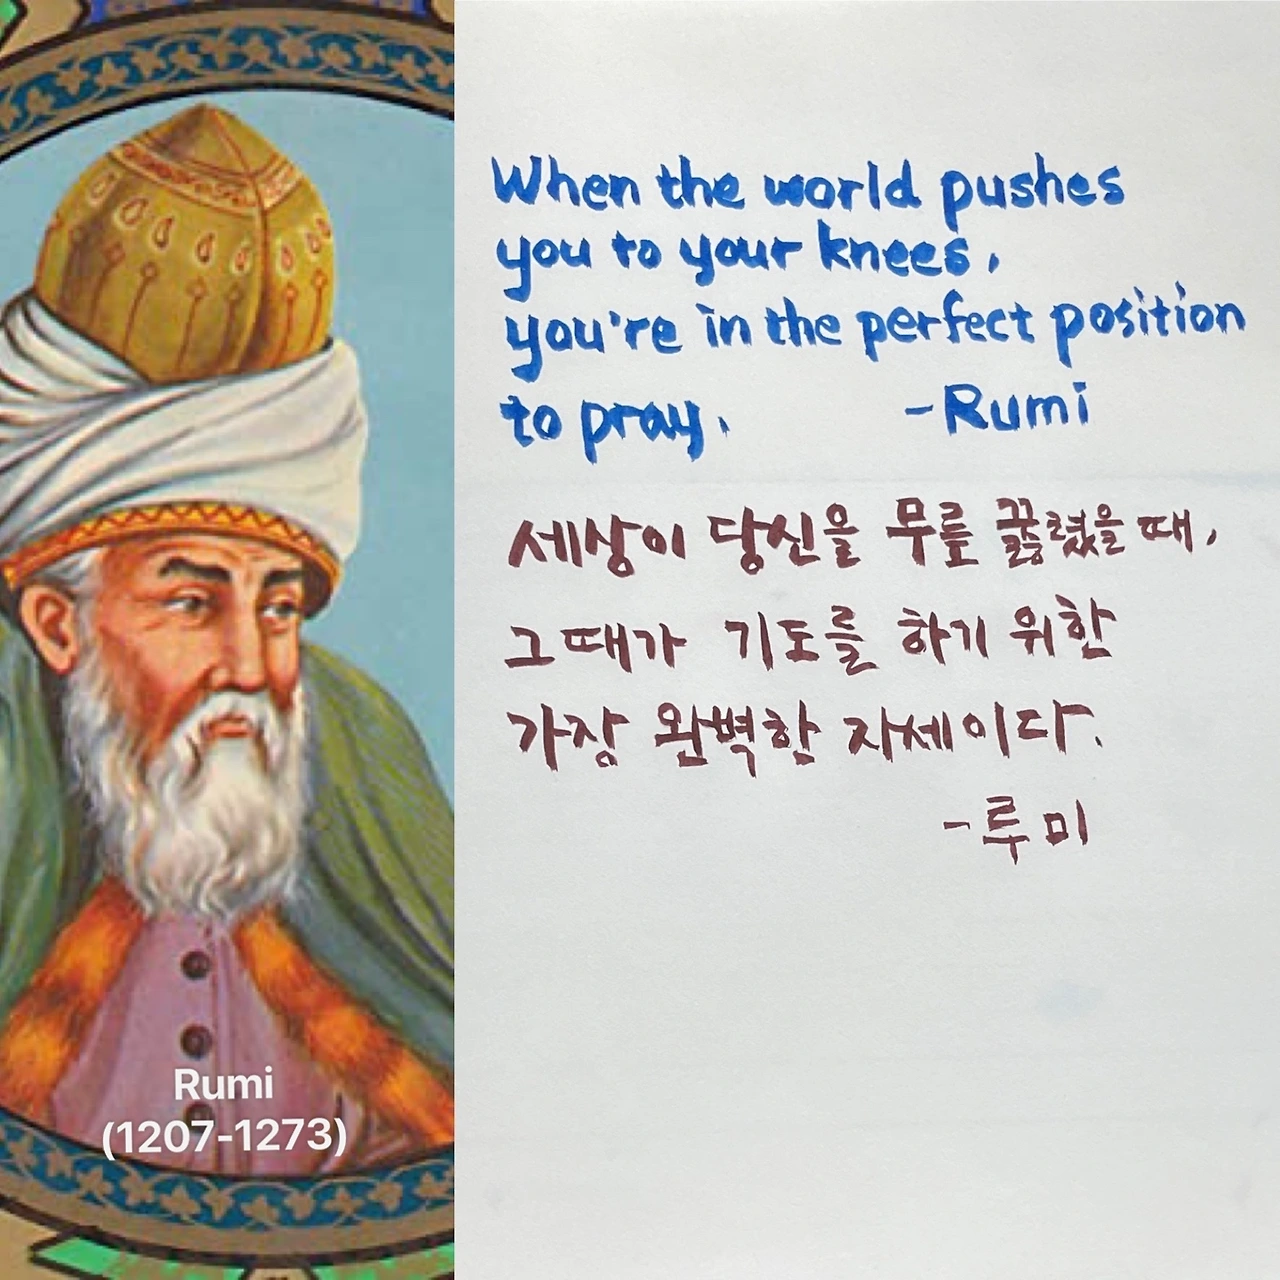 Rumi
(1207-1273)
When the world pushes
you to your knees,
you're in the perfect position
to pray.
-Rumi
세상이 당신을 무릎 꿇렸을 때,
그때가 기도를 하기 위한
가장 완벽한 자세이다.
-루미